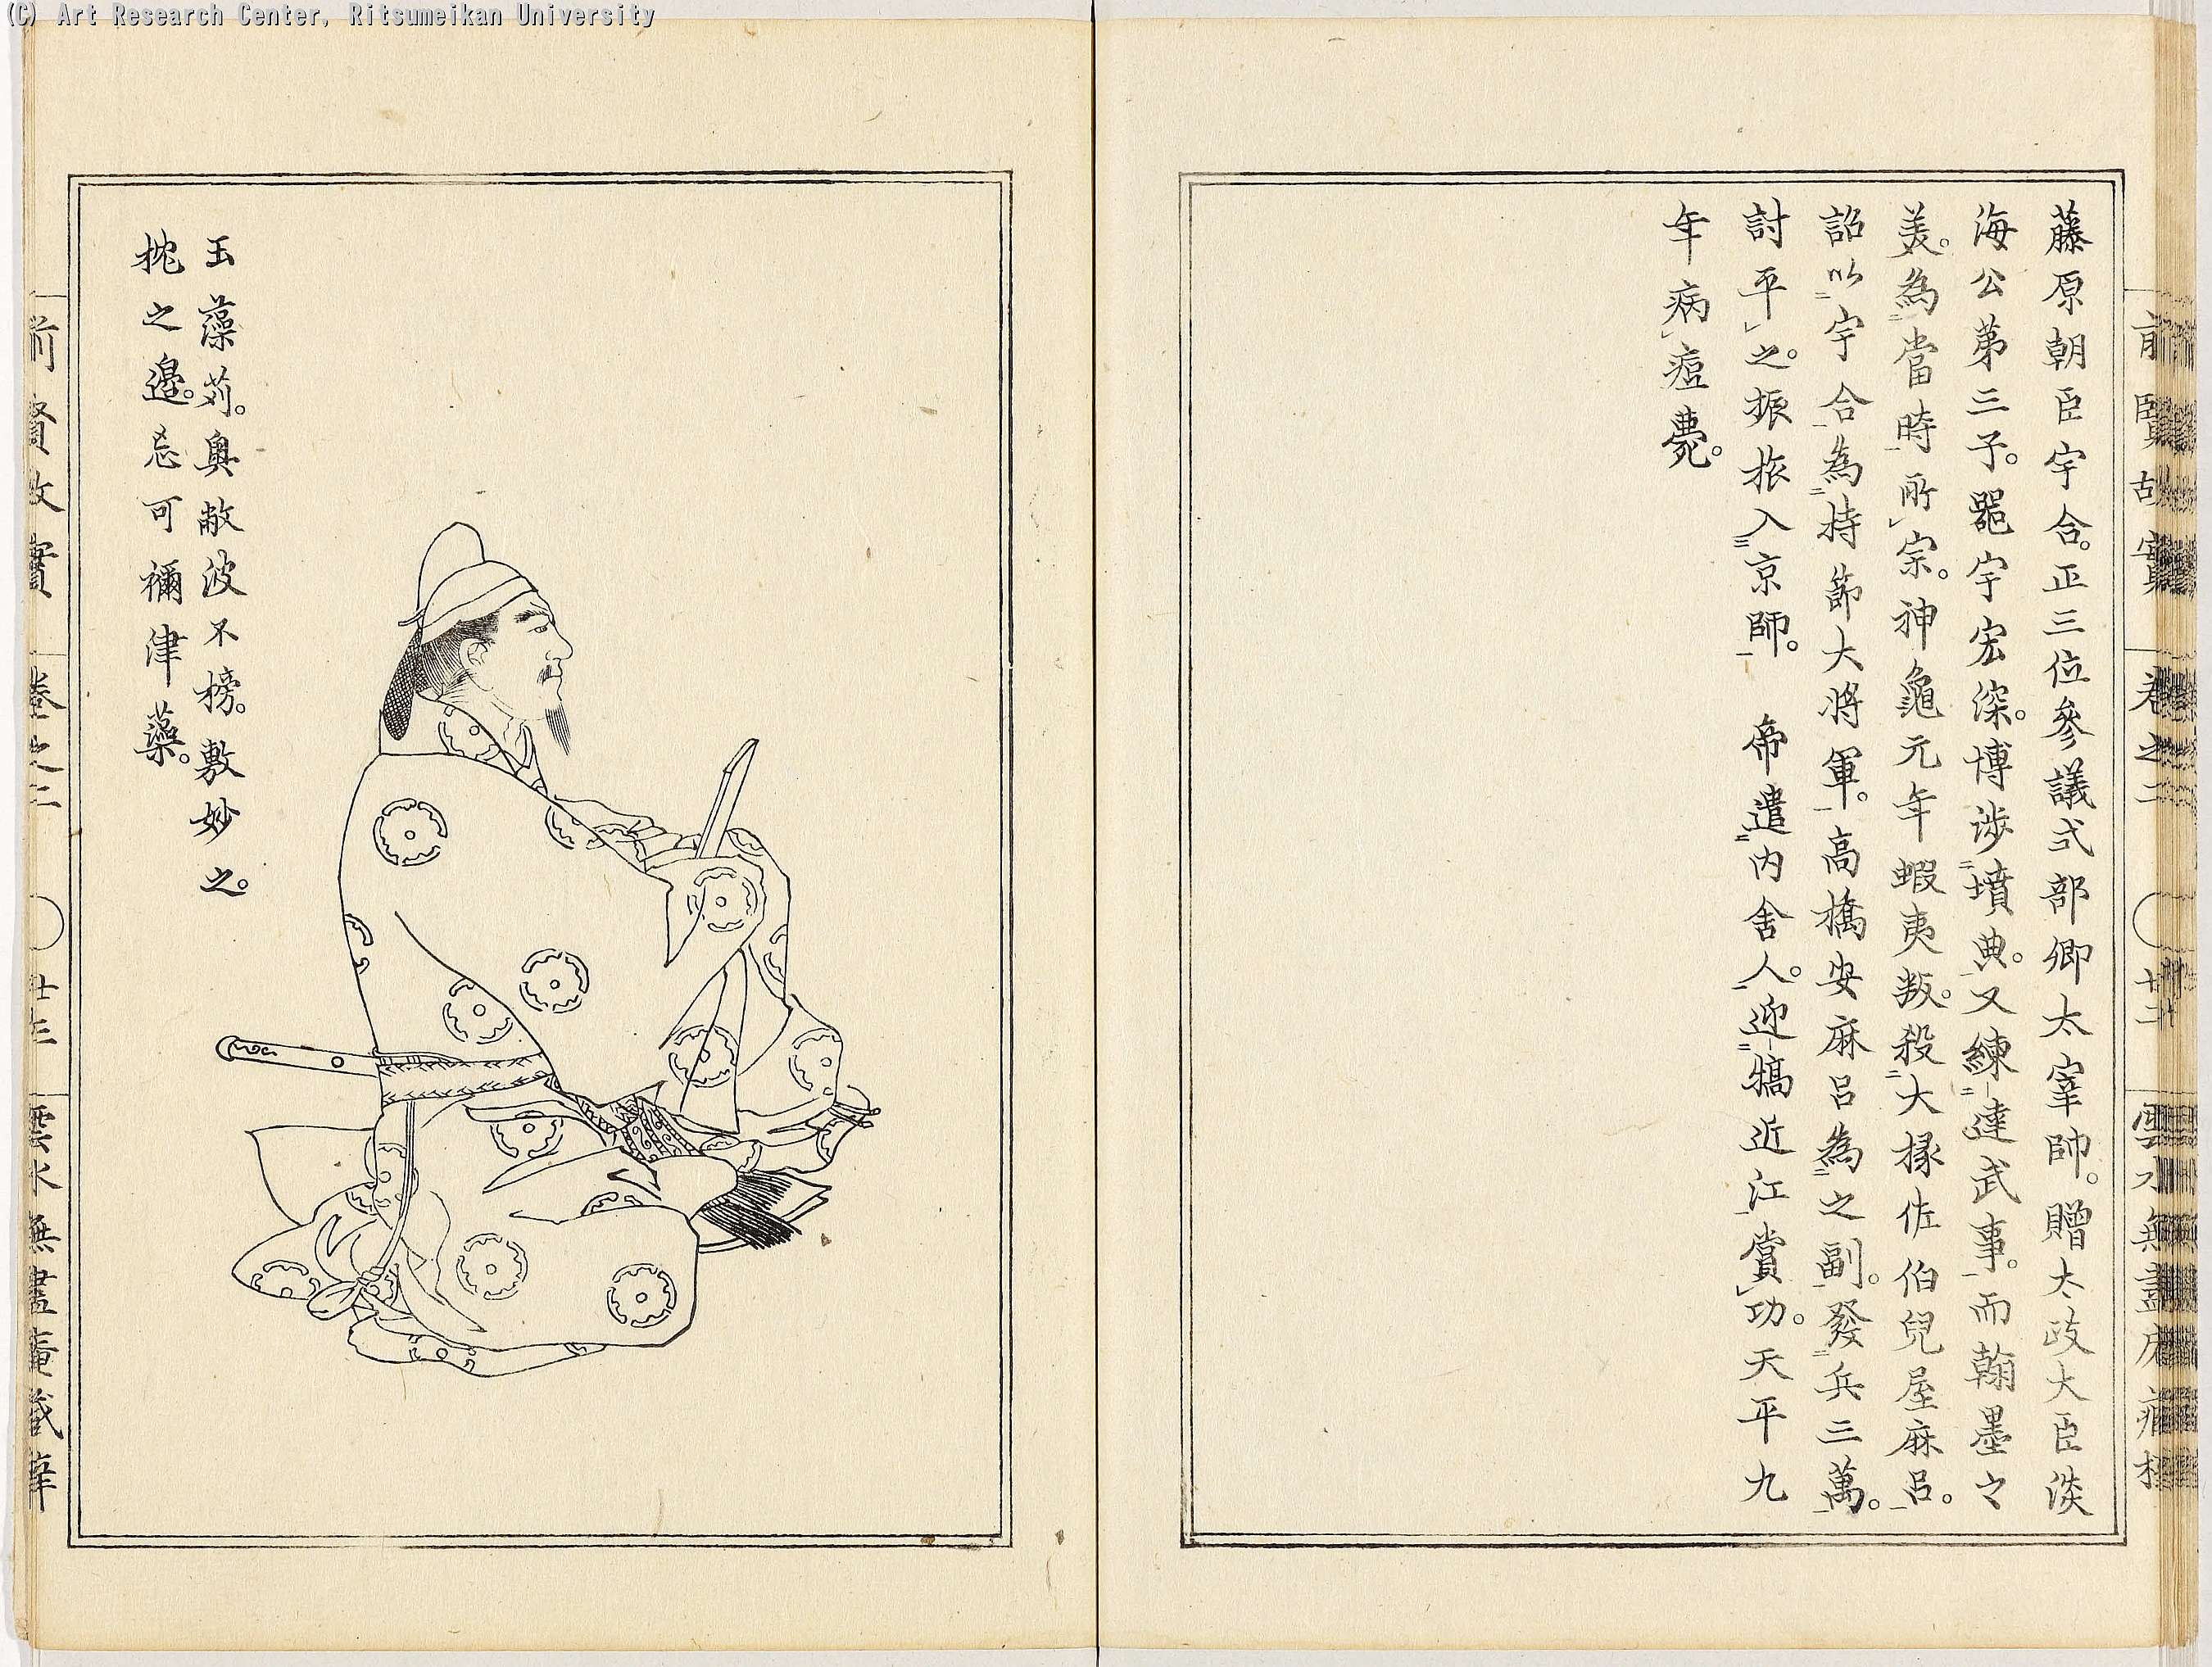 (C) Art Research Center, Ritsumeikan University
藤原朝臣宇合。正三位參議式部卿太宰帥。贈太政大臣淡
海公第三子。器宇宏深。博渉墳典。又練達武事。而翰墨之
美。為當時所宗。神龜元年蝦夷叛。殺大掾佐伯兒屋麻呂。
詔以宇合為持節大將軍。高橋安麻呂為之副。發兵三萬。
討平之。振旅入京師。　帝遣内舍人。迎犒近江賞功。天平九
年病痘薨。
玉藻苅。奥敝波不榜。敷妙之。
枕之邊。忘可禰津藻。
前賢故實　卷之二　〇　廿三　雲水無盡庵藏